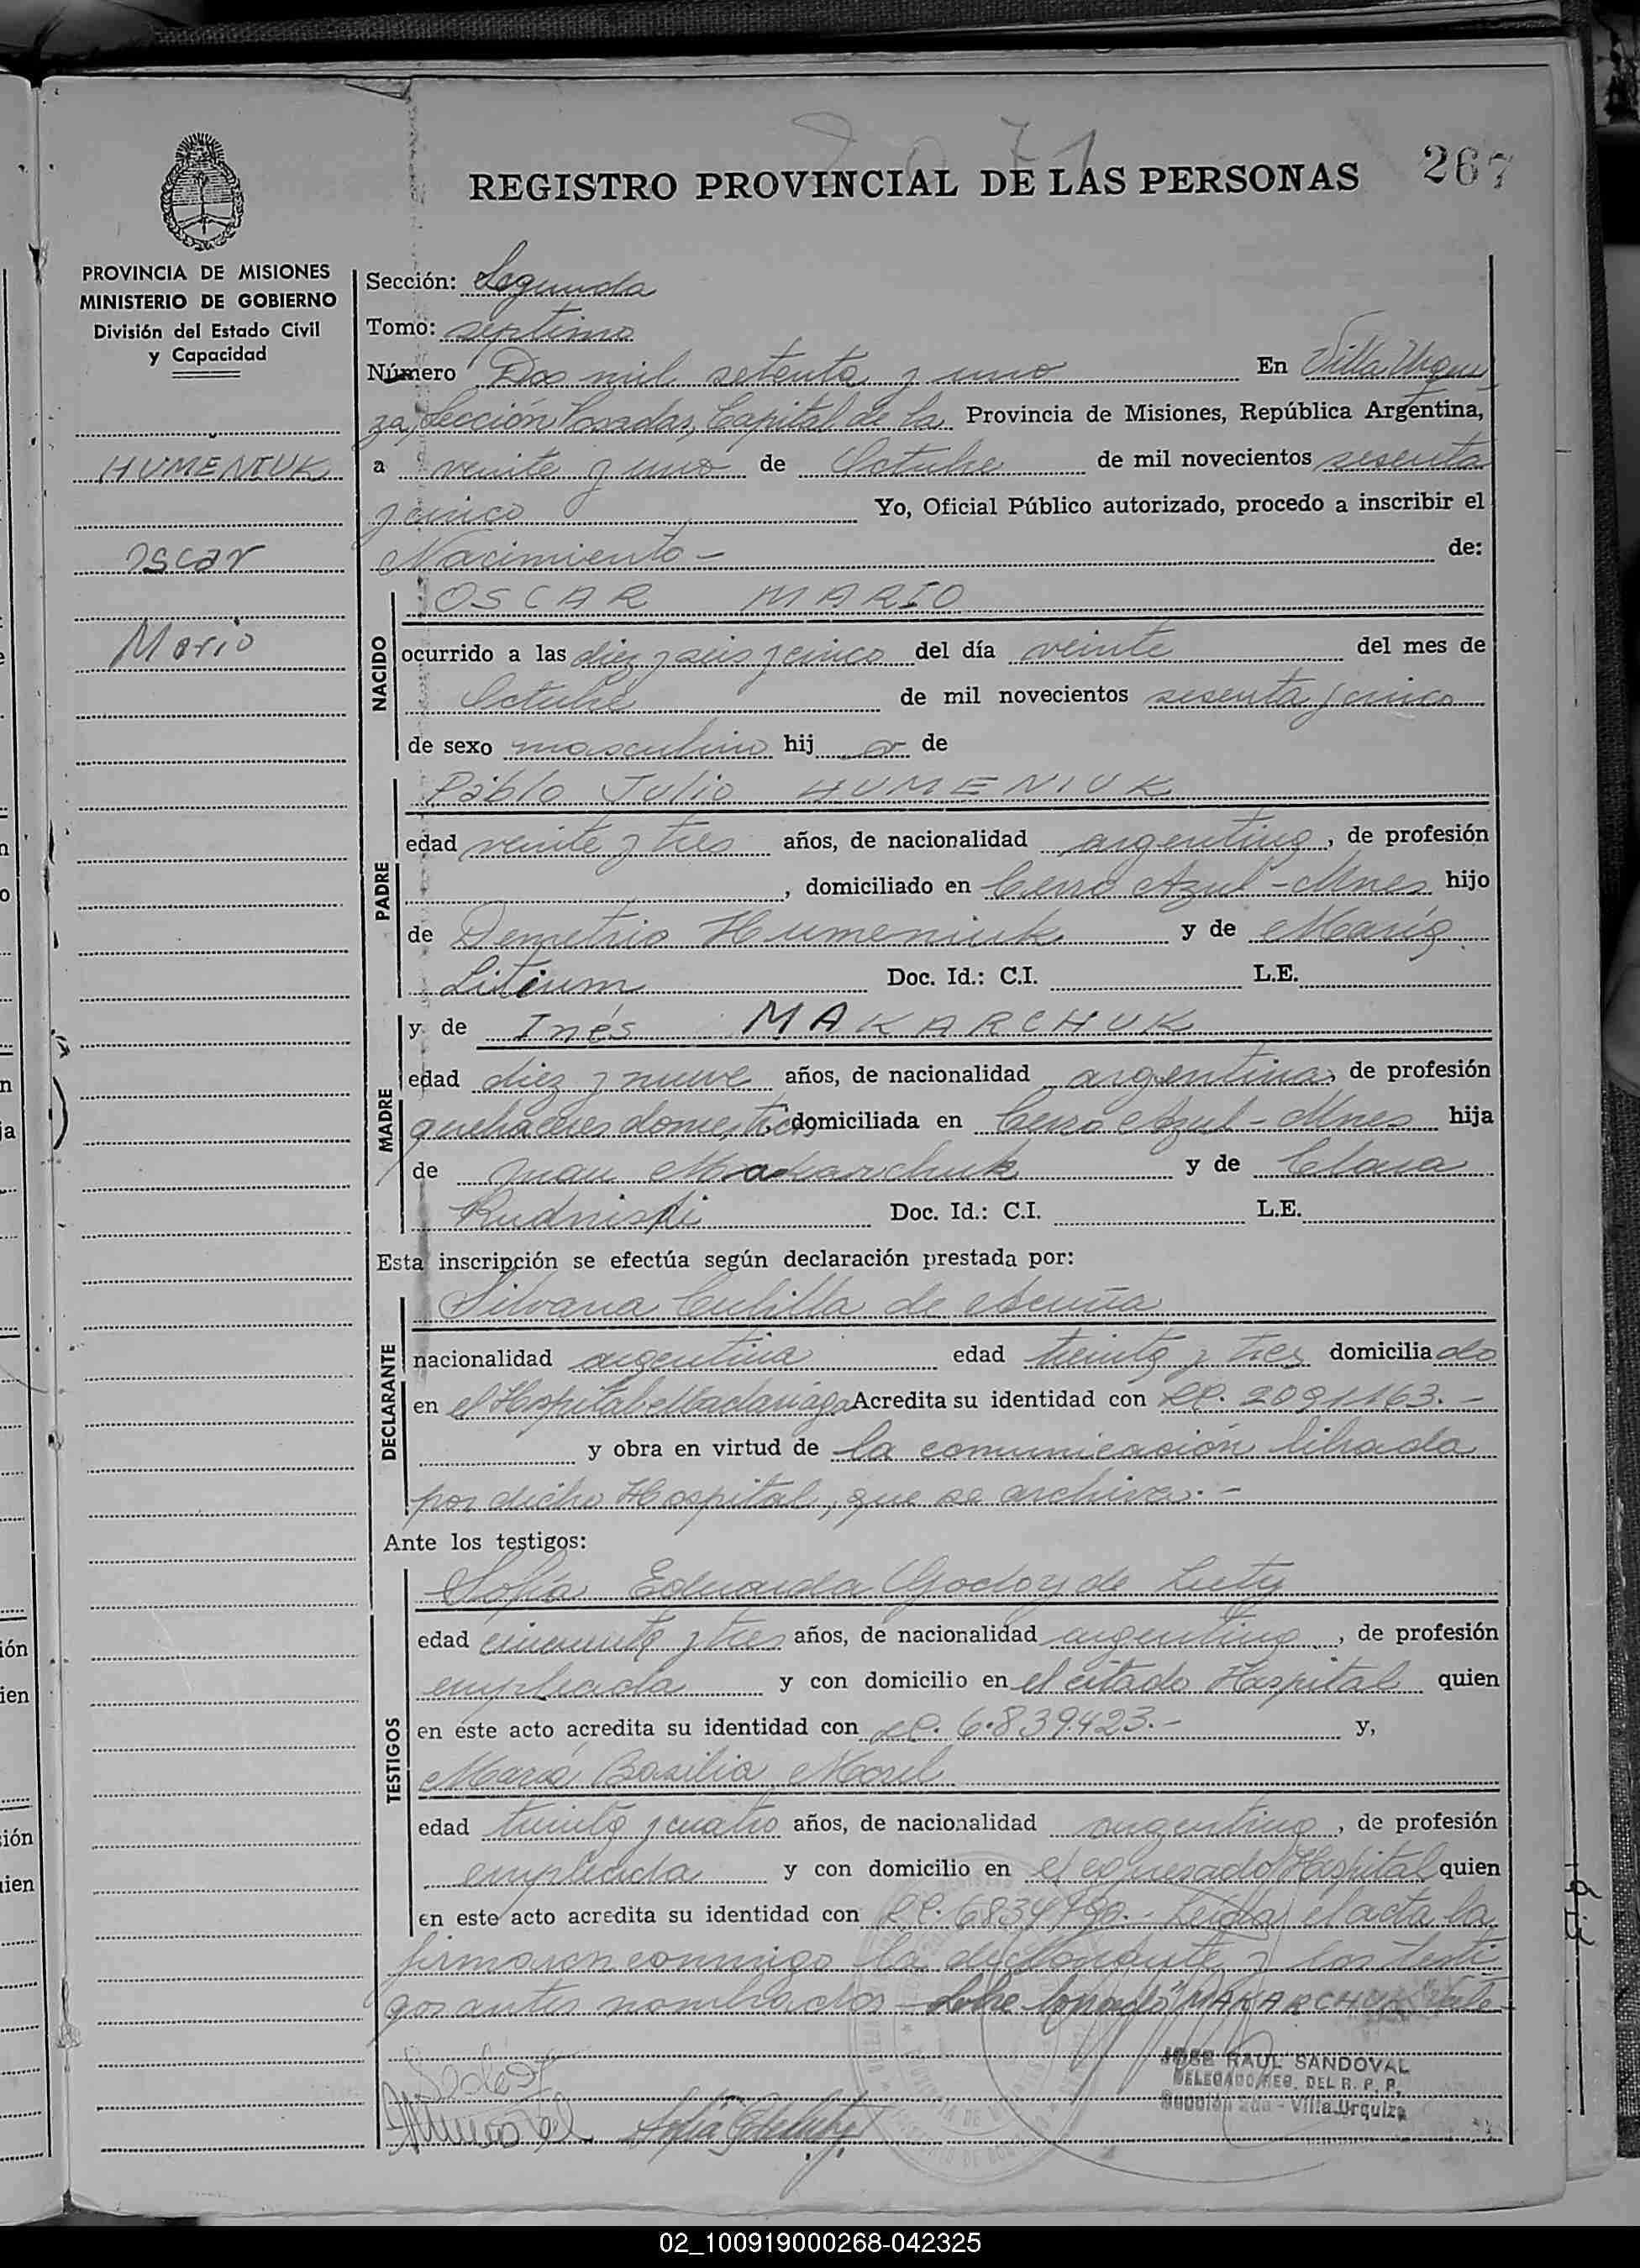 REGISTRO PROVINCIAL DE LAS PERSONAS 267
PROVINCIA DE MISIONES
MINISTERIO DE GOBIERNO
División del Estado Civil
y Capacidad
HUMENIUK
Oscar
Mario
Sección: Segunda
Tomo: septimo
Número Dos mil setenta y uno En Villa Urqui
za, Sección Posadas, Capital de la Provincia de Misiones, República Argentina,
a veinte y uno de Octubre de mil novecientos sesenta
y cinco Yo, Oficial Público autorizado, procedo a inscribir el
Nacimiento - de:
NACIDO
OSCAR MARIO
ocurrido a las diez y seis y cinco del día veinte del mes de
Octubre de mil novecientos sesenta y cinco
de sexo masculino hij o de
PADRE
Pablo Julio HUMENIUK
edad veinte y tres años, de nacionalidad argentino, de profesión
, domiciliado en Cerro Azul - Mnes hijo
de Demetrio Humeniuk y de María
Litium Doc. Id.: C.I. L.E.
MADRE
y de Inés MAKARCHUK
edad diez y nueve años, de nacionalidad argentina, de profesión
quehaceres domesticos domiciliada en Cerro Azul - Mnes hija
de Juan Makarchuk y de Clara
Rudniski Doc. Id.: C.I. L.E.
Esta inscripción se efectúa según declaración prestada por:
DECLARANTE
Silvana Cubilla de Acuña
nacionalidad argentina edad treinta y tres domicilia do
en el Hospital Madariaga Acredita su identidad con LC. 2091163.-
y obra en virtud de la comunicación librada
por dicho Hospital, que se archiva.-
Ante los testigos:
TESTIGOS
Sofía Eduarda Godoy de Luty
edad cincuenta y tres años, de nacionalidad argentina, de profesión
empleada y con domicilio en el citado Hospital quien
en este acto acredita su identidad con LC. 6.839.423.- y,
María Basilia Morel
edad treinta y cuatro años, de nacionalidad argentina, de profesión
empleada y con domicilio en el expresado Hospital quien
en este acto acredita su identidad con LC. 6834790.- Leída el acta la
firmaron conmigo la declarante y los testi
gos antes nombrados - Sobre borrado "MAKARCHUK" Vale-
JOSE RAUL SANDOVAL
DELEGADO REG. DEL R. P. P.
Sección 2da - Villa Urquiza
02_100919000268-042325